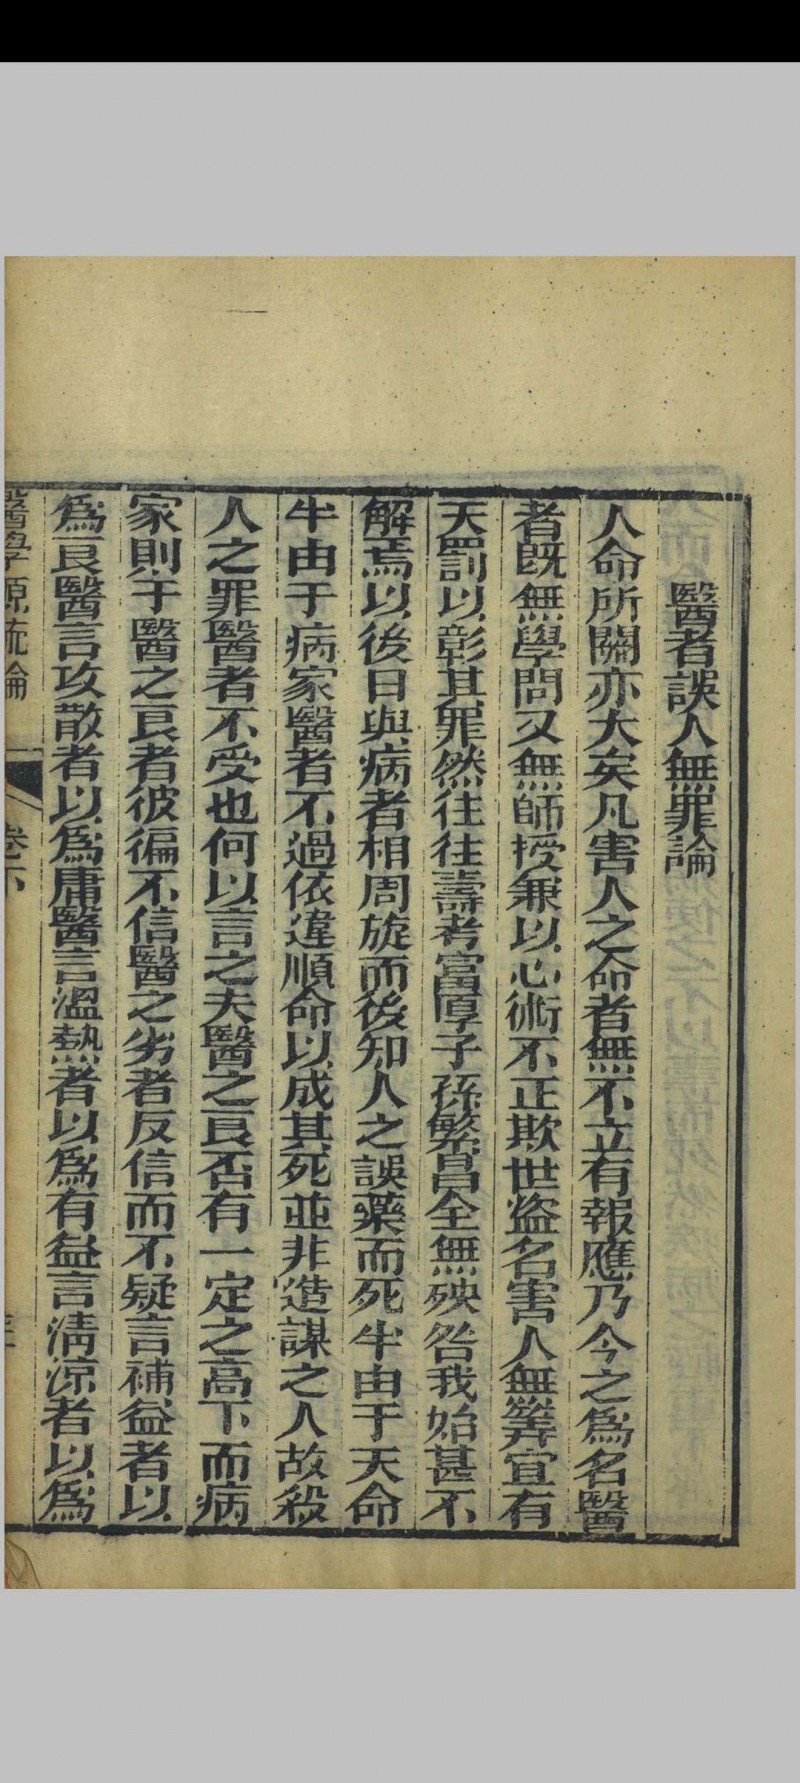 醫者誤人無罪論
人命所關亦大矣凡害人之命者無不立有報應乃今之爲名醫
者既無學問又無師授兼以心術不正欺世盜名害人無筭宜有
天罰以彰其罪然往往壽考富厚子孫繁昌全無殃咎我始甚不
解焉以後日與病者相周旋而後知人之誤藥而死半由于天命
半由于病家醫者不過依違順命以成其死並非造謀之人故殺
人之罪醫者不受也何以言之夫醫之良否有一定之高下而病
家則于醫之良者彼徧不信醫之劣者反信而不疑言補益者以
爲良醫言攻散者以爲庸醫言溫熱者以爲有益言清涼者以爲
醫學源流論 卷下